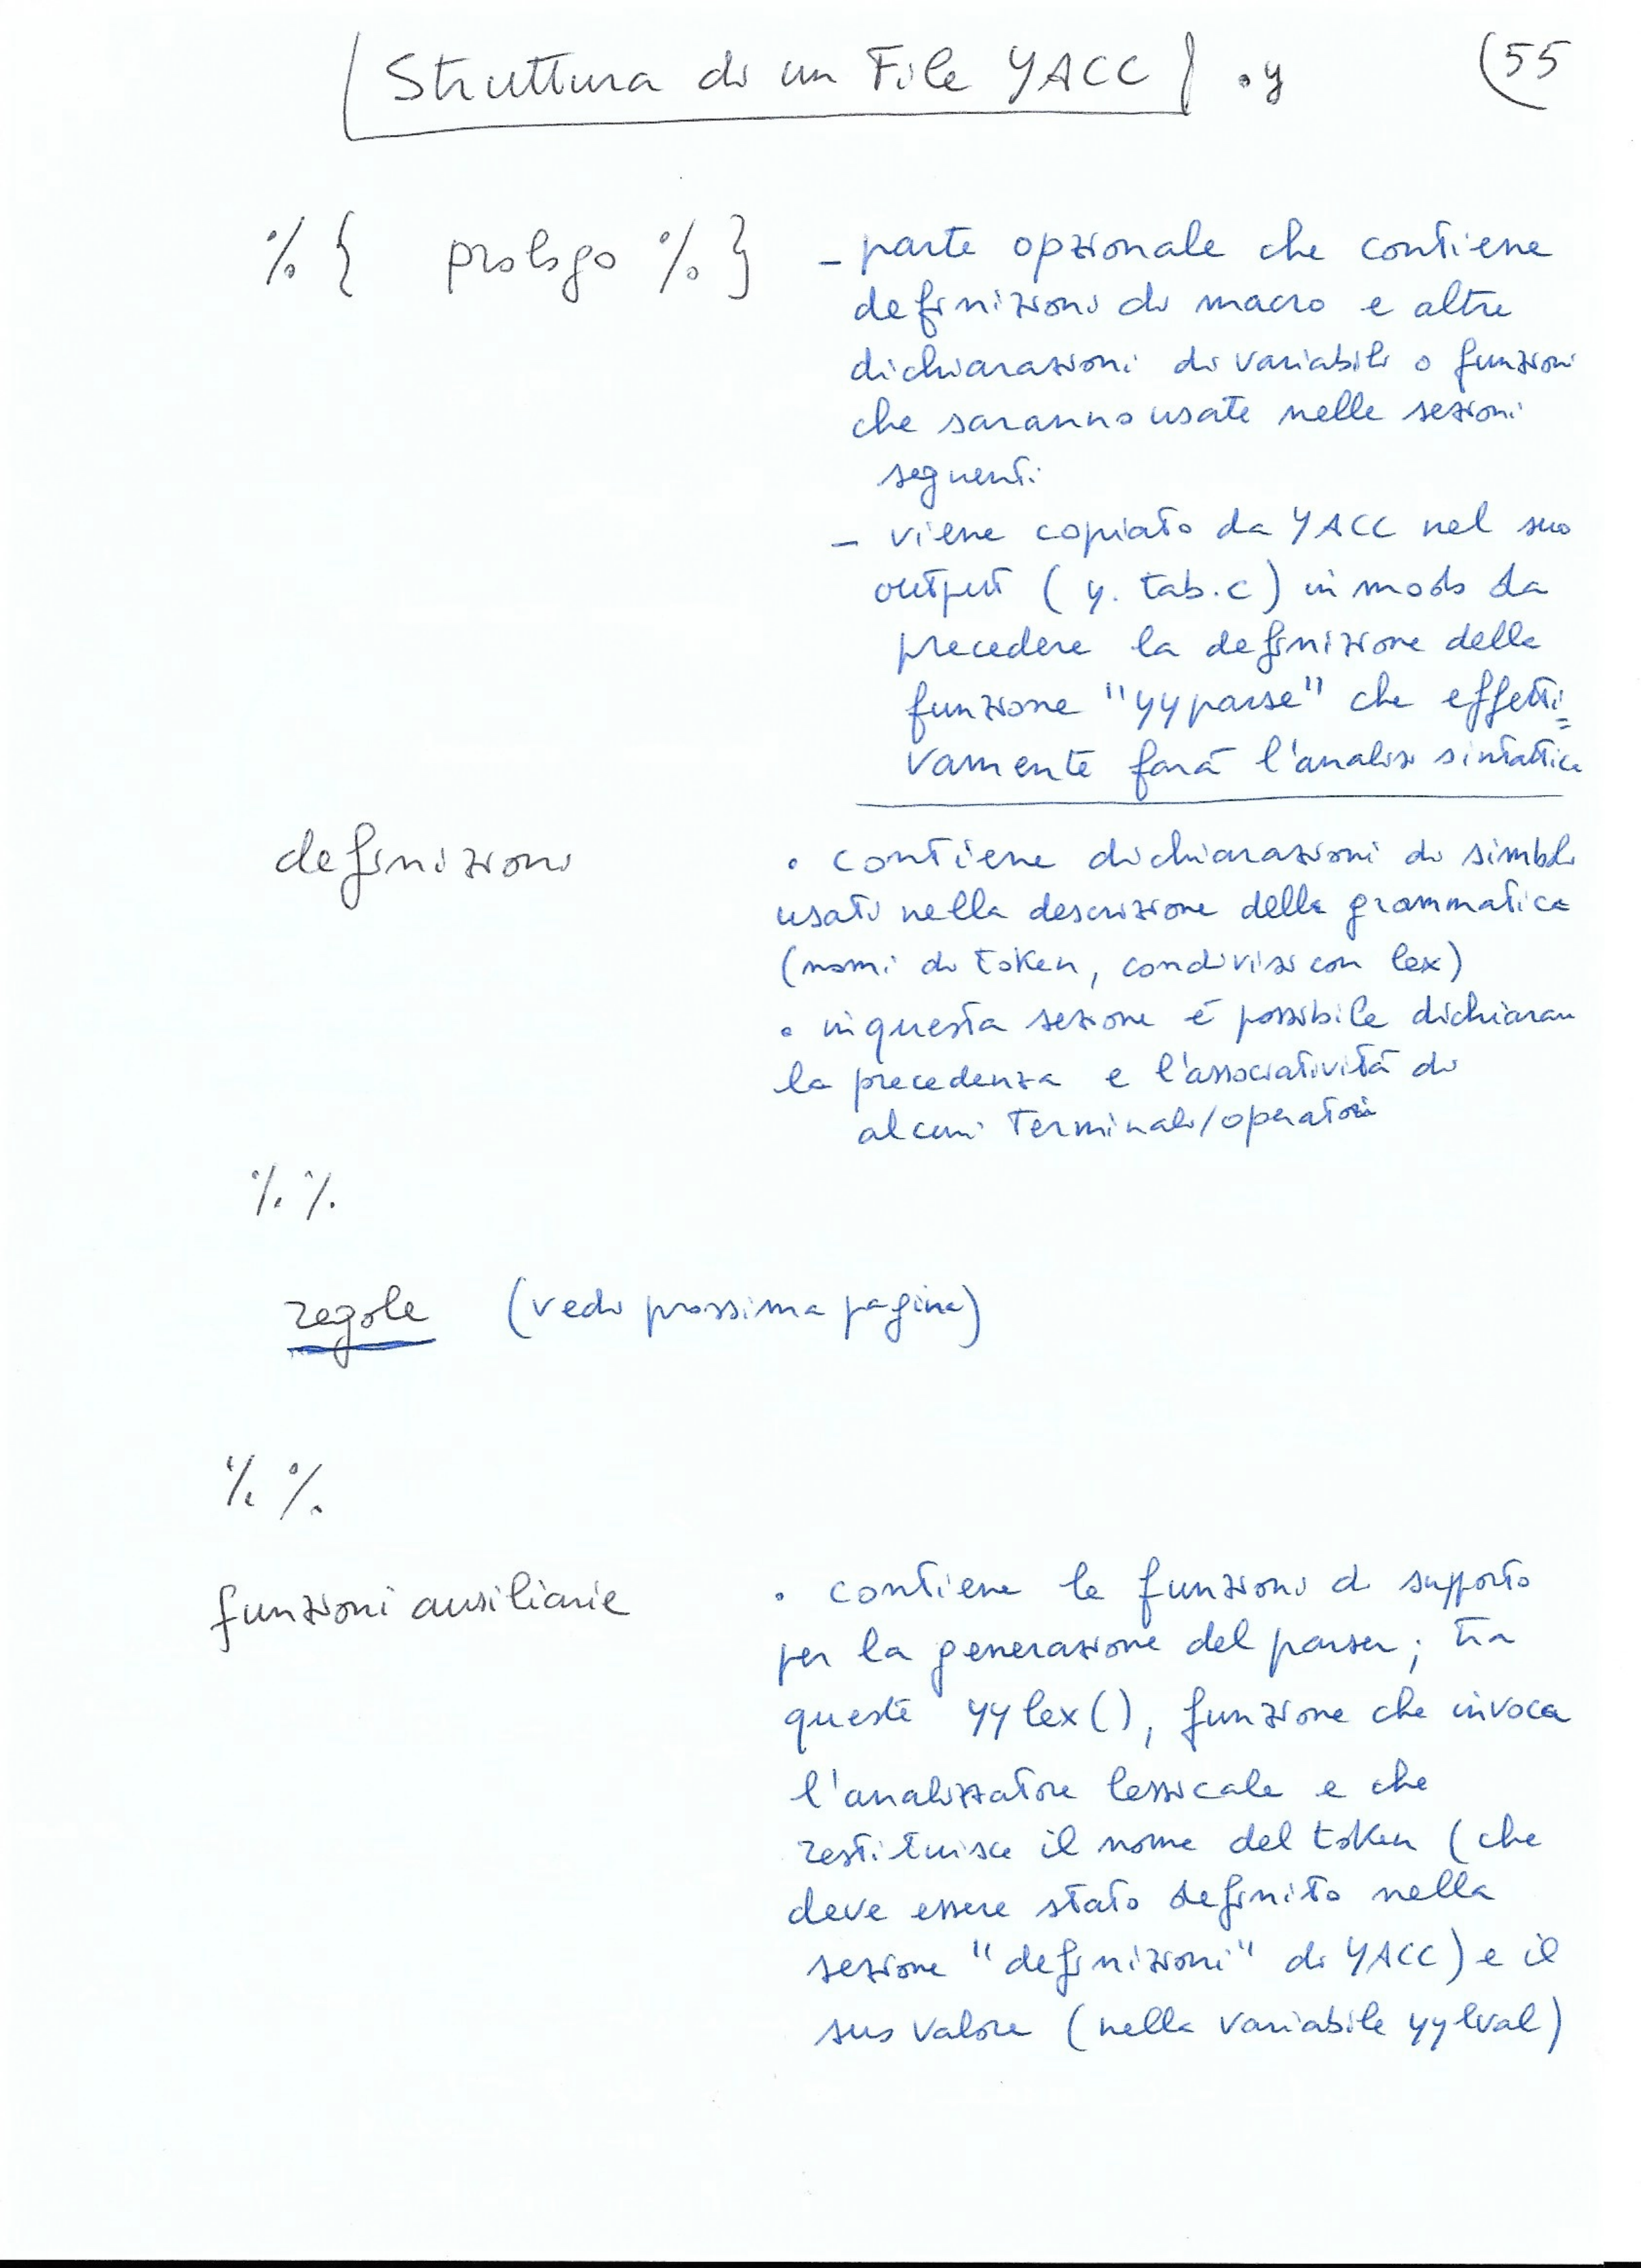 Struttura di un File YACC .y (55
%{ prologo %} – parte opzionale che contiene
definizioni di macro e altre
dichiarazioni di variabili o funzioni
che saranno usate nelle sezioni
seguenti
– viene copiato da YACC nel suo
output (y.tab.c) in modo da
precedere la definizione della
funzione "yyparse" che effetti=
vamente farà l'analisi sintattica
definizioni • contiene dichiarazioni di simboli
usati nella descrizione della grammatica
(nomi di token, condivisi con lex)
• in questa sezione è possibile dichiarare
la precedenza e l'associatività di
alcuni terminali/operatori
%%
regole (vedi prossima pagina)
%%
funzioni ausiliarie • contiene le funzioni di supporto
per la generazione del parser; tra
queste yylex(), funzione che invoca
l'analizzatore lessicale e che
restituisce il nome del token (che
deve essere stato definito nella
sezione "definizioni" di YACC) e il
suo valore (nella variabile yylval)